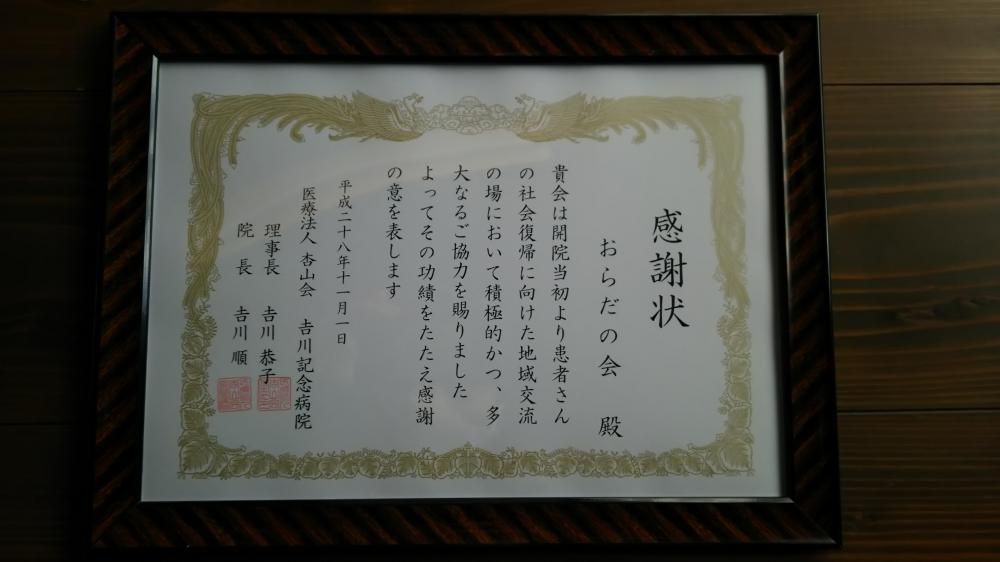 感謝状
おらだの会 殿
貴会は開院当初より患者さん
の社会復帰に向けた地域交流
の場において積極的かつ、多
大なるご協力を賜りました
よってその功績をたたえ感謝
の意を表します
平成二十八年十一月一日
医療法人 杏山会 𠮷川記念病院
理事長 𠮷川 恭子
院長 𠮷川 順